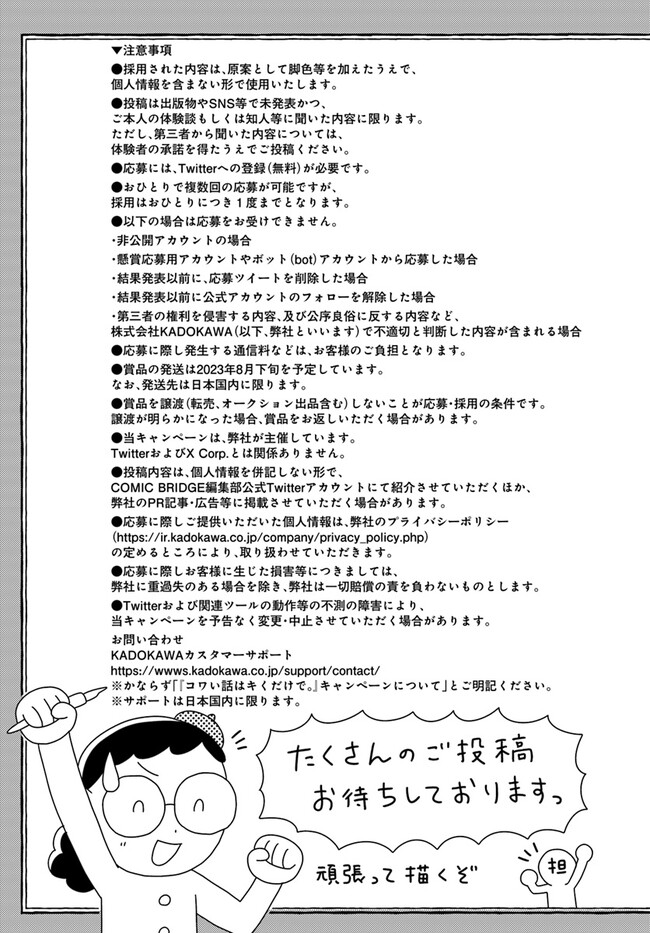 ▼注意事項
●採用された内容は、原案として脚色等を加えたうえで、
個人情報を含まない形で使用いたします。
●投稿は出版物やSNS等で未発表かつ、
ご本人の体験談もしくは知人等に聞いた内容に限ります。
ただし、第三者から聞いた内容については、
体験者の承諾を得たうえでご投稿ください。
●応募には、Twitterへの登録(無料)が必要です。
●おひとりで複数回の応募が可能ですが、
採用はおひとりにつき1度までとなります。
●以下の場合は応募をお受けできません。
・非公開アカウントの場合
・懸賞応募用アカウントやボット(bot)アカウントから応募した場合
・結果発表以前に、応募ツイートを削除した場合
・結果発表以前に公式アカウントのフォローを解除した場合
・第三者の権利を侵害する内容、及び公序良俗に反する内容など、
株式会社KADOKAWA(以下、弊社といいます)で不適切と判断した内容が含まれる場合
●応募に際し発生する通信料などは、お客様のご負担となります。
●賞品の発送は2023年8月下旬を予定しています。
なお、発送先は日本国内に限ります。
●賞品を譲渡(転売、オークション出品含む)しないことが応募・採用の条件です。
譲渡が明らかになった場合、賞品をお返しいただく場合があります。
●当キャンペーンは、弊社が主催しています。
TwitterおよびX Corp.とは関係ありません。
●投稿内容は、個人情報を併記しない形で、
COMIC BRIDGE編集部公式Twitterアカウントにて紹介させていただくほか、
弊社のPR記事・広告等に掲載させていただく場合があります。
●応募に際しご提供いただいた個人情報は、弊社のプライバシーポリシー
(https://ir.kadokawa.co.jp/company/privacy_policy.php)
の定めるところにより、取り扱わせていただきます。
●応募に際しお客様に生じた損害等につきましては、
弊社に重過失のある場合を除き、弊社は一切賠償の責を負わないものとします。
●Twitterおよび関連ツールの動作等の不測の障害により、
当キャンペーンを予告なく変更・中止させていただく場合があります。
お問い合わせ
KADOKAWAカスタマーサポート
https://wwws.kadokawa.co.jp/support/contact/
※かならず「『コワい話はキくだけで。』キャンペーンについて」とご明記ください。
※サポートは日本国内に限ります。
たくさんのご投稿
お待ちしておりますっ
頑張って描くぞ
担